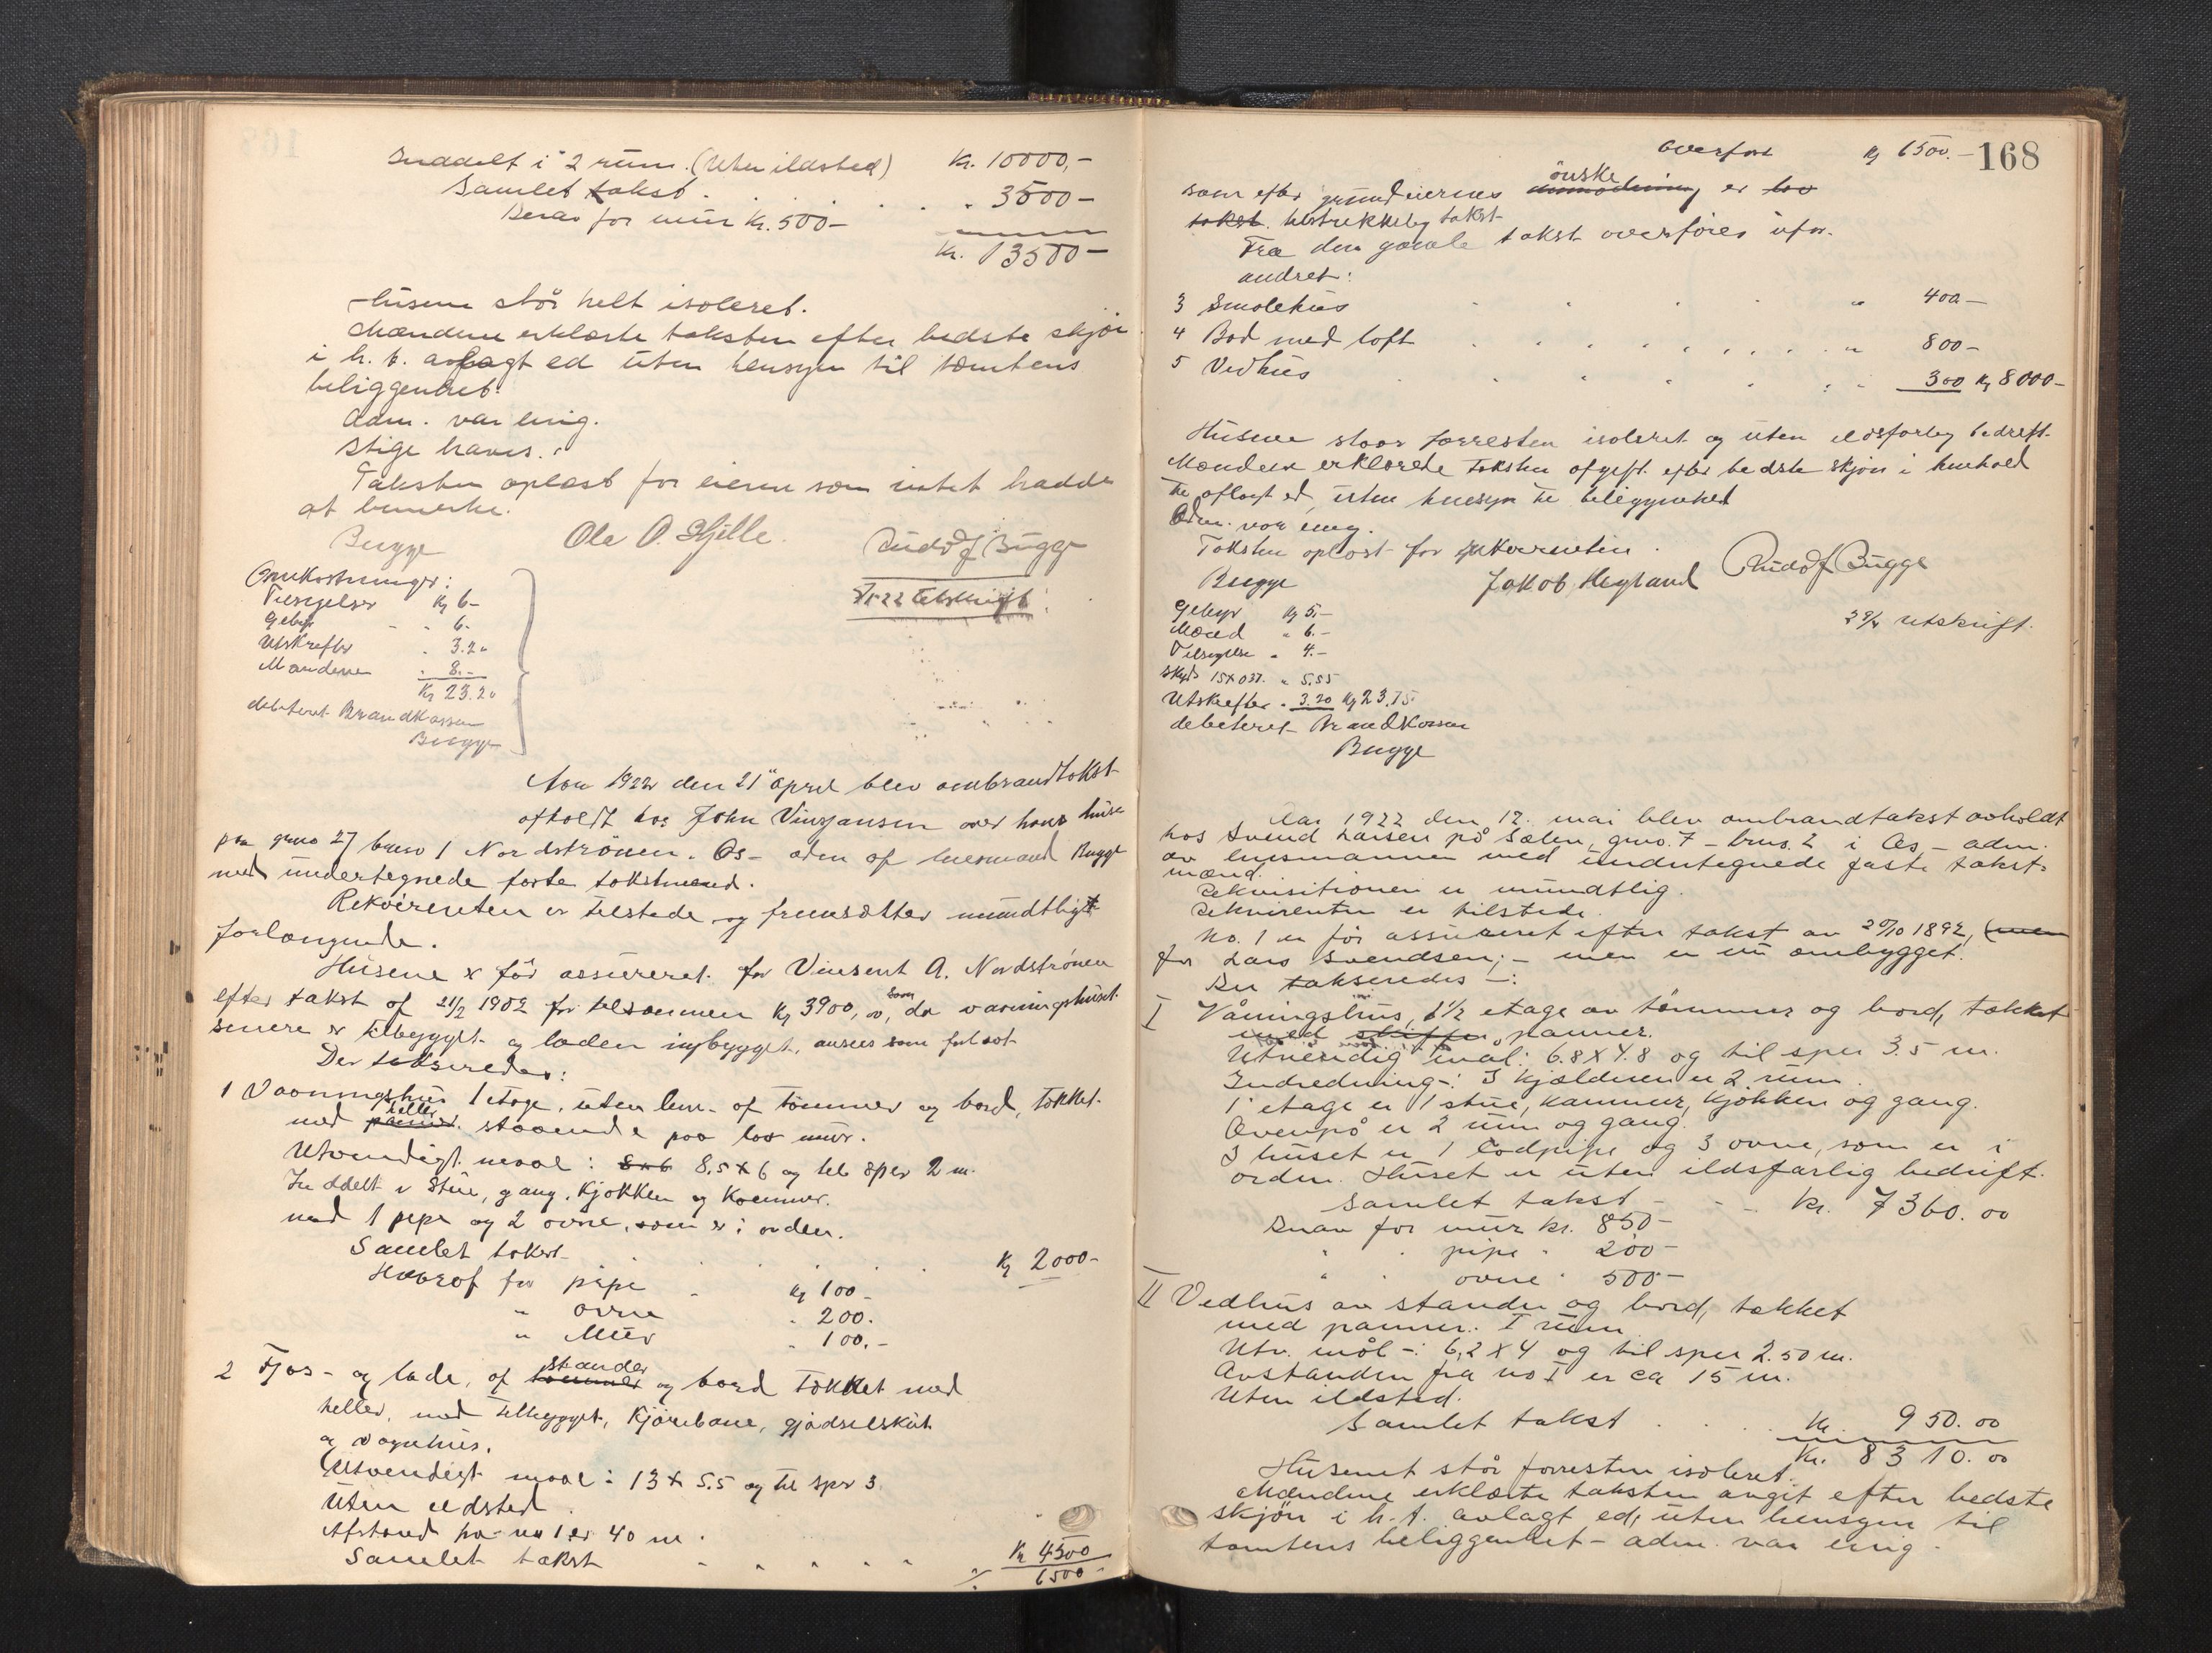 Inddelt i 2 rum. (Uten ildsted) Kr. 10000,-
Samlet takst . . . . . 3500-
Derav for mur Kr. 500-
Kr. 13500-
Husene står helt isoleret.
Mændene erklærte taksten efter bedste skjøn
i h. t. avlagt ed uten hensyn til tomtens
beliggenhet.
Adm. var enig.
Stige haves.
Taksten oplæst for eieren som intet hadde
at bemerke.
Bugge Ole O. Hjelle. Rudolf Bugge
Omkostninger:
Tilsigelser Kr 6-
Gebyr - " 6-
Utskrifter . 3.20
Mændene . 8.-
Kr 23.20
debiteret Brandkassen
Bugge
utskrift
Aar 1922 den 21 april blev ombrandtakst
afholdt hos John Vinsjansen over hans huse
paa gno 27 bno 1 Nordströnen. Os - adm af lensmand Bugge
med undertegnede faste takstmænd.
Rekvirenten er tilstede og fremsætter mundtligt
forlangende.
Husene er før assureret for Vinsent A. Nordströnen
efter takst af 21/2 1902 for tilsammen Kr 3900,00, som da vaaningshuset
senere er tilbygget og laden nybygget, ansees som forladt
Der takseredes:
1 Vaaningshus 1 etage, uten lem - af tömmer og bord, tækket
med panner heller staaende paa lös mur.
Utvendigt maal: 8x6 8.5 x 6 og til sper 2 m.
Inddelt i Stue, gang, Kjøkken og Kammer.
med 1 pipe og 2 ovne, som er i orden.
Samlet takst . . . . Kr 2000-
Herav for pipe - Kr 100-
" ovne . 200.
" Mur . 100.-
2 Fjøs - og lade, af tømmer stander og bord tækket med
heller, med tilbygget, Kjørebane, gjødselskut
og vognhus.
Utvendigt maal: 13 x 5.5 og til sper 3
Uten ildsted
Afstand fra no 1 er 40 m.
Samlet takst - " " " " Kr 4500
6500-
168
Overført Kr 6500.-
som efter grundeiernes anmodning ønske er lav
takst. tilstrekkelig takst
Fra den gamle takst overføres ufor-
andret:
3 Smalehus . . . . " 400-
4 Bod med loft . . . . . . . . " 800-
5 Vedhus . . . . . . 300 Kr 8000-
Husene staar forresten isoleret og uten ildsfarlig bedrift.
Mændene erklærede taksten afgit efter bedste skjøn i henhold
til aflagt ed, uten hensyn til beliggenhet
Adm. var enig.
Taksten oplæst for rekvirenten.
Bugge Jakob Hegland Rudolf Bugge
Gebyr Kr 5.-
Mænd " 6.-
Tilsigelse " 4.-
Skyds 15x037. " 5.55
Utskrifter - 3.20 Kr 23.75
debiteret Brandkassen
Bugge
utskrift.
Aar 1922 den 12. mai blev ombrandtakst avholdt
hos Svend Larsen på Sælen, gno. 7 - brno. 2 i Os - adm.
av lensmannen med undertegnede faste takst-
mænd.
Rekvisitionen er mundtlig.
Rekvirenten er tilstede.
No. 1 er før assureret efter takst av 20/10 1892, (men
for Lars Svendsen; - men er nu ombygget.
Der takseredes -:
I Våningshus, 1 1/2 etage av tömmer og bord, tækket
med skiffer panner.
Utvendig mål: 6.8 x 4.8 og til sper 3.5 m.
Indredning -: I kjælderen er 2 rum.
1 etage er 1 stue, kammer, kjøkken og gang.
Ovenpå er 2 rum og gang.
I huset er 1 lodpipe og 3 ovne, som er i
orden. Huset er uten ildsfarlig bedrift.
Samlet takst - - - Kr. 7360.00
Derav for mur kr. 850-
" . pipe " 200-
" . ovne " 500-
II Vedhus av stander og bord, tækket
med panner. I rum
Utv. mål -: 6,2 x 4 og til sper 2.50 m.
Avstanden fra no I er ca 15 m.
Uten ildsted.
Samlet takst . . . Kr. 950.00
Kr. 8310.00
Husenet står forresten isoleret.
Mændene erklærte taksten avgit efter bedste
skjön i h. t. avlagt ed, uten hensyn til
tomtens beliggenhet - adm. var enig -